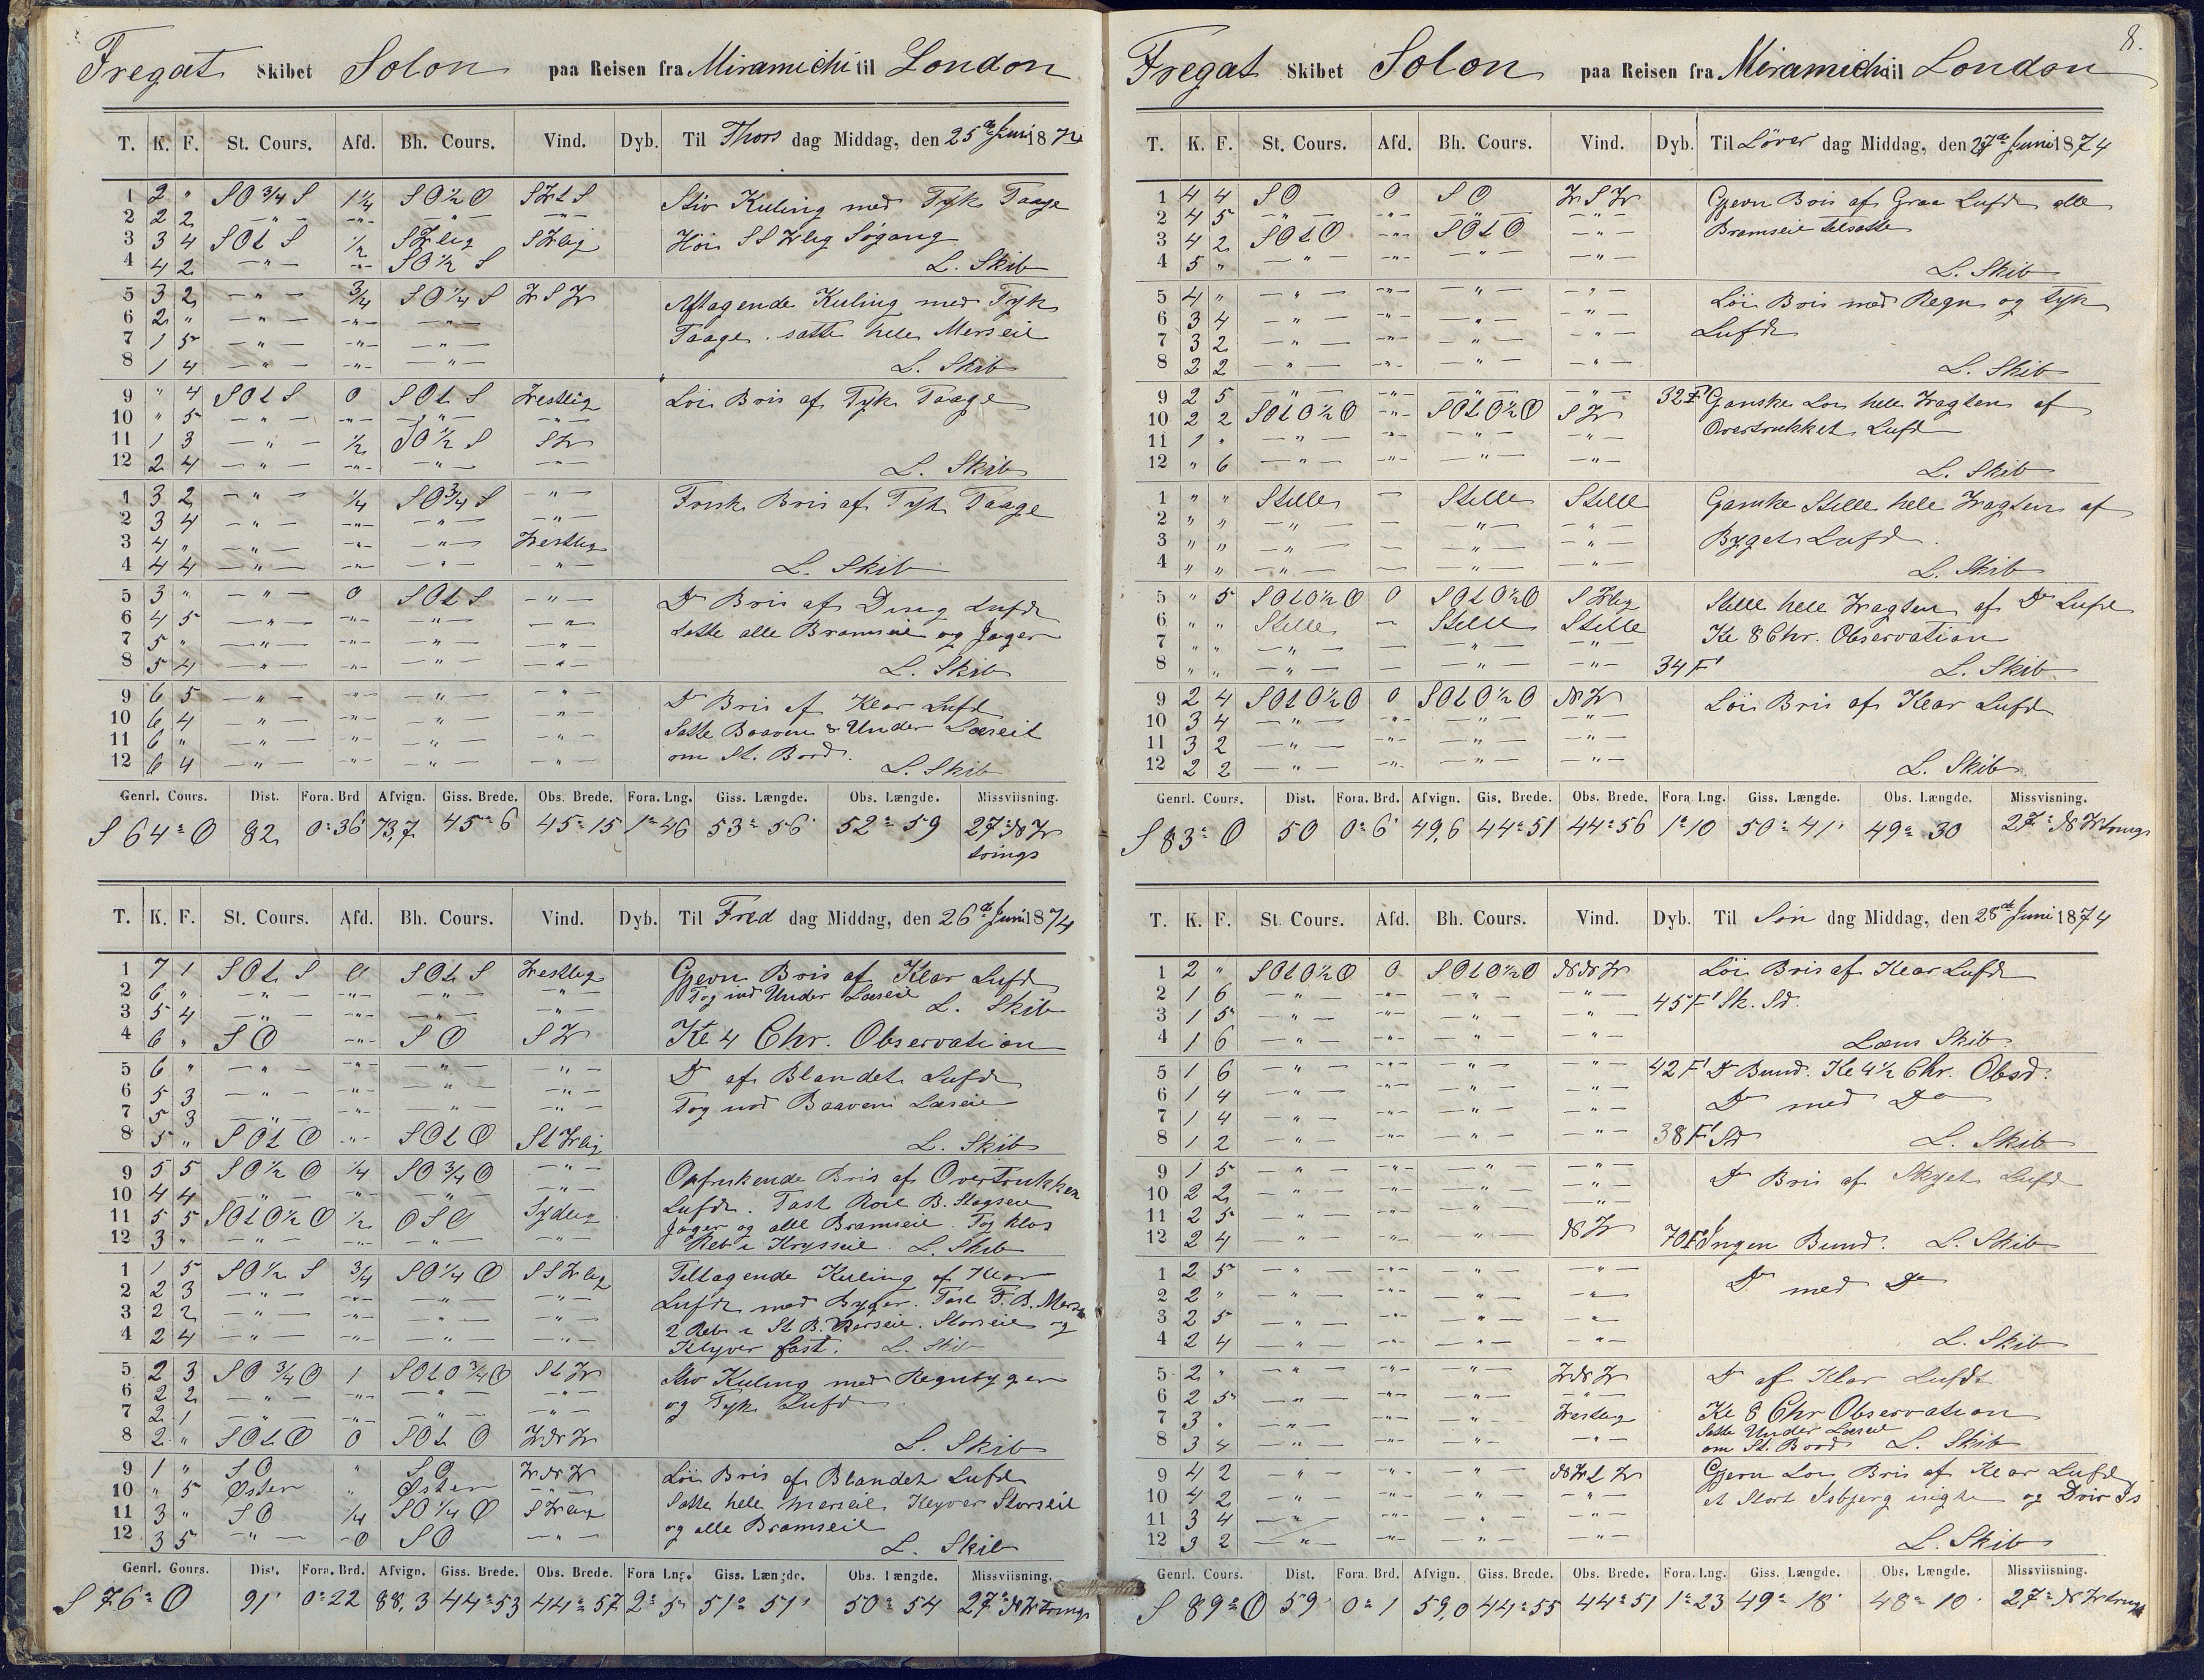 Fregat Skibet Solon paa Reisen fra Miramichi til London
T. K. F. St. Cours. Afd. Bh. Cours. Vind. Dyb. Til Thors dag Middag, den 25de Juni 1874
1 2 " SO 3/4 S 1 1/4 SO 1/2 O SWtS Stiv Kuling med Tyk Taage
2 2 2 —"— —"— —"— —"—
3 3 4 SOt S 1/2 SWlig Høi SSWlig Søgang
4 4 2 —"— —"— SO 1/2 S L. Skib
5 3 2 —"— 3/4 SO 1/4 S WSW Aftagende Kuling med Tyk
6 2 " —"— —"— —"—
7 1 5 —"— —"— —"— Taage. satte hele Merseil
8 1 4 —"— —"— —"— L. Skib
9 " 4 SOt S 0 SOt S Westlig Løi Bris af Tyk Taage
10 " 5 —"— —"— —"— —"—
11 1 3 —"— 1/2 SO 1/2 S SW
12 2 4 —"— —"— —"— —"— L. Skib
1 3 2 —"— 1/4 SO 3/4 S —"— Frisk Bris af Tyk Taage
2 3 4 —"— —"— —"— —"—
3 4 " —"— —"— —"— Westlig
4 4 4 —"— —"— —"— —"— L. Skib
5 3 " —"— 0 SOt S —"— Do Bris af Disig Lufdt
6 4 5 —"— —"— —"— —"—
7 5 " —"— —"— —"— —"— Satte alle Bramseil og Jager
8 5 4 —"— —"— —"— —"— L. Skib
9 6 5 —"— —"— —"— —"— Do Bris af Klar Lufdt
10 6 4 —"— —"— —"— —"— Satte Baaven & Under Læseil
11 6 " —"— —"— —"— —"— om St. Bord.
12 6 4 —"— —"— —"— —"— L. Skib
Genrl. Cours. Dist. Fora. Brd Afvign. Giss. Brede. Obs. Brede. Fora. Lng. Giss. Længde. Obs. Længde. Missviisning.
S 64° O 82 0° 36' 73,7 45° 6 45° 15 1° 46 53° 56' 52° 59 27° NW
tvings
T. K. F. St. Cours. Afd. Bh. Cours. Vind. Dyb. Til Fred dag Middag, den 26de Juni 1874
1 7 1 SOt S 0 SOt S Westlig Gjevn Bris af Klar Lufdt
2 6 " —"— —"— —"— —"— Tog ind Under Læseil
3 5 4 —"— —"— —"— —"— L. Skib
4 6 " SO —"— SO SW Kl 4 Chr. Observation
5 6 " —"— —"— —"— —"— Do af Blandet Lufdt
6 5 3 —"— —"— —"— —"—
7 5 3 —"— —"— —"— —"— Tog ind Baaven Læseil
8 5 " SOt O —"— SOt O StWlig L. Skib
9 5 5 SO 1/2 O 1/4 SO 3/4 O —"— Opfriskende Bris af Overtrukken
10 4 4 —"— —"— —"— —"— Lufdt. Fast Roil B. Stagseil
11 5 5 SOt O 1/2 O 1/2 OSO Sydlig Jager og alle Bramseil. Tog klos
12 3 " —"— —"— —"— —"— Reb i Krysseil. L. Skib
1 1 5 SO 1/2 S 3/4 SO 1/4 O SSWlig Tiltagende Kuling af Klar
2 2 3 —"— —"— —"— —"— Lufdt med Byger.
3 2 2 —"— —"— —"— —"— 2 Reb i St B. Merseil. Storseil og
4 2 4 —"— —"— —"— —"— Klyver fast. L. Skib
5 2 3 SO 3/4 O 1 SOt O 3/4 O StW Stiv Kuling med Regnbyger
6 2 2 —"— —"— —"— —"— og Tyk Lufdt.
7 2 1 —"— —"— —"— —"—
8 2 " SOt O 0 SOt O WNW L. Skib
9 1 " SO " SO WNW Løi Bris af Blandet Lufdt
10 " 5 Østen " Østen —"— Satte hele Merseil Klyver Storseil
11 3 " SO 1/4 SO 1/4 O SWlig og alle Bramseil
12 3 5 —"— 0 SO —"— L. Skib
Genrl. Cours. Dist. Fora. Brd. Afvign. Giss. Brede. Obs. Brede. Fora Lng. Giss. Længde. Obs. Længde. Missviisning.
S 76° O 91' 0° 22 88,3 44° 53 44° 57 2° 5 51° 51' 50° 54 27° NWtvings
8.
Fregat Skibet Solon paa Reisen fra Miramichi til London
T. K. F. St. Cours. Afd. Bh. Cours. Vind. Dyb. Til Løver dag Middag, den 27de Juni 1874
1 4 4 SO 0 SO WSW Gjevn Bris af Graa Lufdt alle
2 4 5 —"— —"— —"— —"— Bramseil tilsatte
3 4 2 SOt O —"— SOt O —"—
4 5 " —"— —"— —"— —"— L. Skib
5 4 " —"— —"— —"— —"— Løi Bris med Regn og tyk
6 3 4 —"— —"— —"— —"— Lufdt
7 3 2 —"— —"— —"— —"—
8 2 2 —"— —"— —"— —"— L. Skib
9 2 5 —"— —"— —"— —"— 32 F' Ganske Løi hele Wagten af
10 2 2 SOt O 1/2 O —"— SOt O 1/2 O SW Overtrukket Lufd
11 1 " —"— —"— —"— —"—
12 " 6 —"— —"— —"— —"— L. Skib
1 " " Stille — Stille Stille Ganske Stille hele Wagten af
2 " " —"— — —"— —"—
3 " " —"— — —"— —"— Byget Lufd.
4 " " —"— — —"— —"— L. Skib
5 " 5 SOt O 1/2 O 0 SOt O 1/2 O SWlig Stille hele Wagten af Do Lufdt
6 " " Stille — Stille Stille Kl 8 Chr. Observation
7 " " —"— — —"— —"—
8 " " —"— — —"— —"— 34 F' L. Skib
9 2 4 SOt O 1/2 O 0 SOt O 1/2 O NW Løi Bris af Klar Lufdt
10 3 4 —"— —"— —"— —"—
11 3 2 —"— —"— —"— —"—
12 2 2 —"— —"— —"— —"— L. Skib
Genrl. Cours. Dist. Fora. Brd. Afvign. Gis. Brede. Obs. Brede. Fora Lng. Giss. Længde. Obs. Længde. Missvisning.
S 83° O 50 0° 6' 49,6 44° 51 44° 56 1° 10 50° 41' 49° 30 27° NWtvings
T. K. F. St. Cours. Afd. Bh. Cours. Vind. Dyb. Til Søn dag Middag, den 28de Juni 1874
1 2 " SOt O 1/2 O 0 SOt O 1/2 O NNW Løi Bris af Klar Lufdt
2 1 6 —"— —"— —"— —"— 45 F' Sk. Sd.
3 1 5 —"— —"— —"— —"—
4 1 6 —"— —"— —"— —"— Læns Skib.
5 1 6 —"— —"— —"— —"— 42 F' Do Bund. Kl 4 1/2 Chr. Obsd.
6 1 4 —"— —"— —"— —"— Do med Do
7 1 4 —"— —"— —"— —"—
8 1 2 —"— —"— —"— —"— 38 F' Sd L. Skib
9 1 5 —"— —"— —"— —"— Do Bris af Skyet Lufd
10 2 2 —"— —"— —"— —"—
11 2 5 —"— —"— —"— —"—
12 2 4 —"— —"— —"— NW 70 F' Ingen Bund. L. Skib
1 2 5 —"— —"— —"— —"— Do med Do
2 2 " —"— —"— —"— —"—
3 2 5 —"— —"— —"— —"—
4 2 4 —"— —"— —"— —"— L. Skib
5 2 " —"— —"— —"— WNW Do af Klar Lufdt
6 2 5 —"— —"— —"— —"—
7 3 " —"— —"— —"— Westlig Kl 8 Chr Observation
8 3 4 —"— —"— —"— —"— Satte Under Læseil
om St. Bord L. Skib
9 4 2 —"— —"— —"— NWt W Gjevn Løi Bris af Klar Lufdt
10 4 2 —"— —"— —"— —"— et Stort Isbjerg og Driv Is
11 3 4 —"— —"— —"— —"—
12 3 2 —"— —"— —"— —"— L. Skib
Genrl. Cours. Dist. Fora. Brd. Afvign. Giss. Brede. Obs. Brede. Fora. Lng. Giss. Længde. Obs. Længde. Missviisning.
S 89° O 59' 0° 1 59,0 44° 55 44° 51 1° 23 49° 18' 48° 10' 27° NWtvings